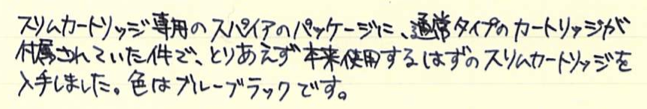 スリムカートリッジ専用のスパイアのパッケージに、通常タイプのカートリッジが
付属されていた件で、とりあえず本来使用するはずのスリムカートリッジを
入手しました。色はブルーブラックです。